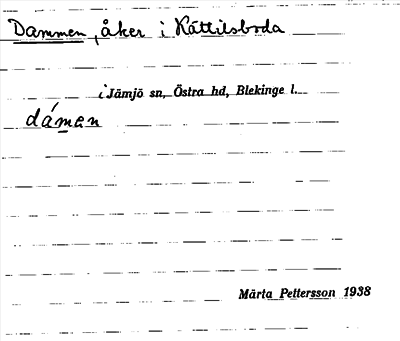 Dammen, åker i Kättilsboda
i Jämjö sn, Östra hd, Blekinge l.
dámen
Märta Pettersson 1938